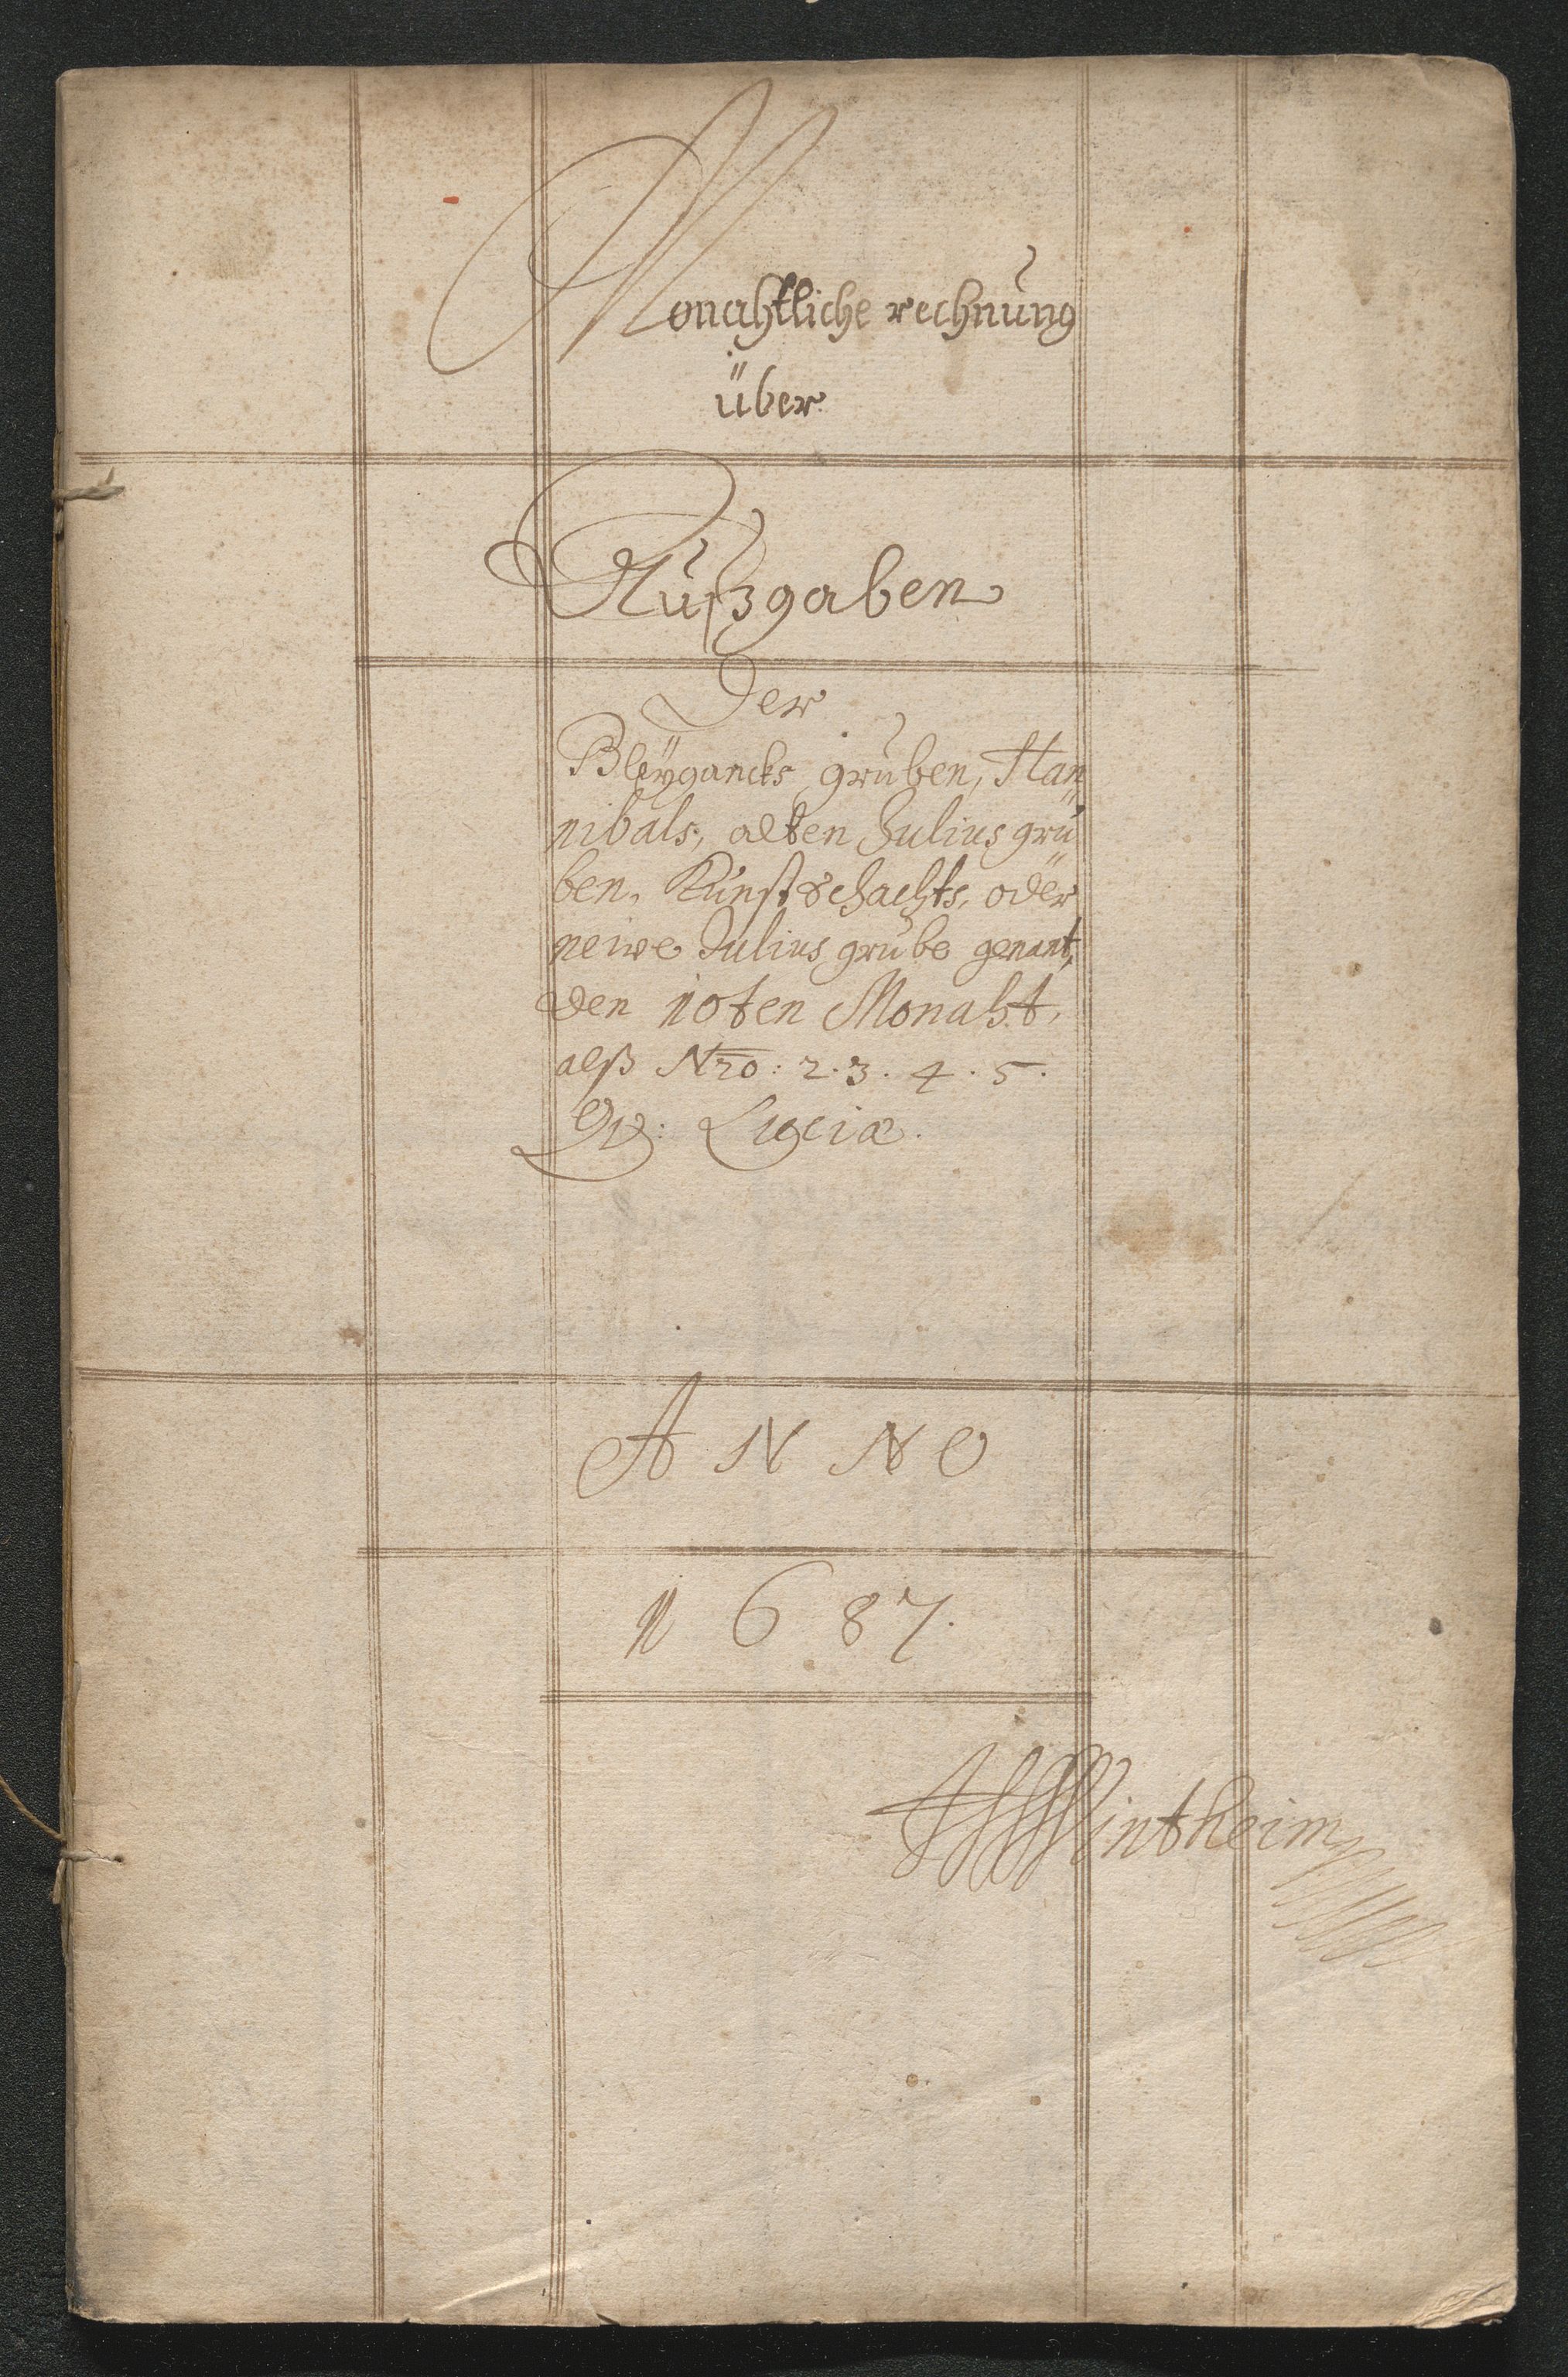 Monahtliche rechnung
über
Außgaben
Der
Bleÿgancks gruben, Han„
nibals, alten Julius gru„
ben, Kunstschachts, oder
neiwe Julius grube genant,
den 10ten Monaht,
alß Nro: 2. 3. 4. 5.
Qv: Luciæ.
ANNO
1687.
Wintheim